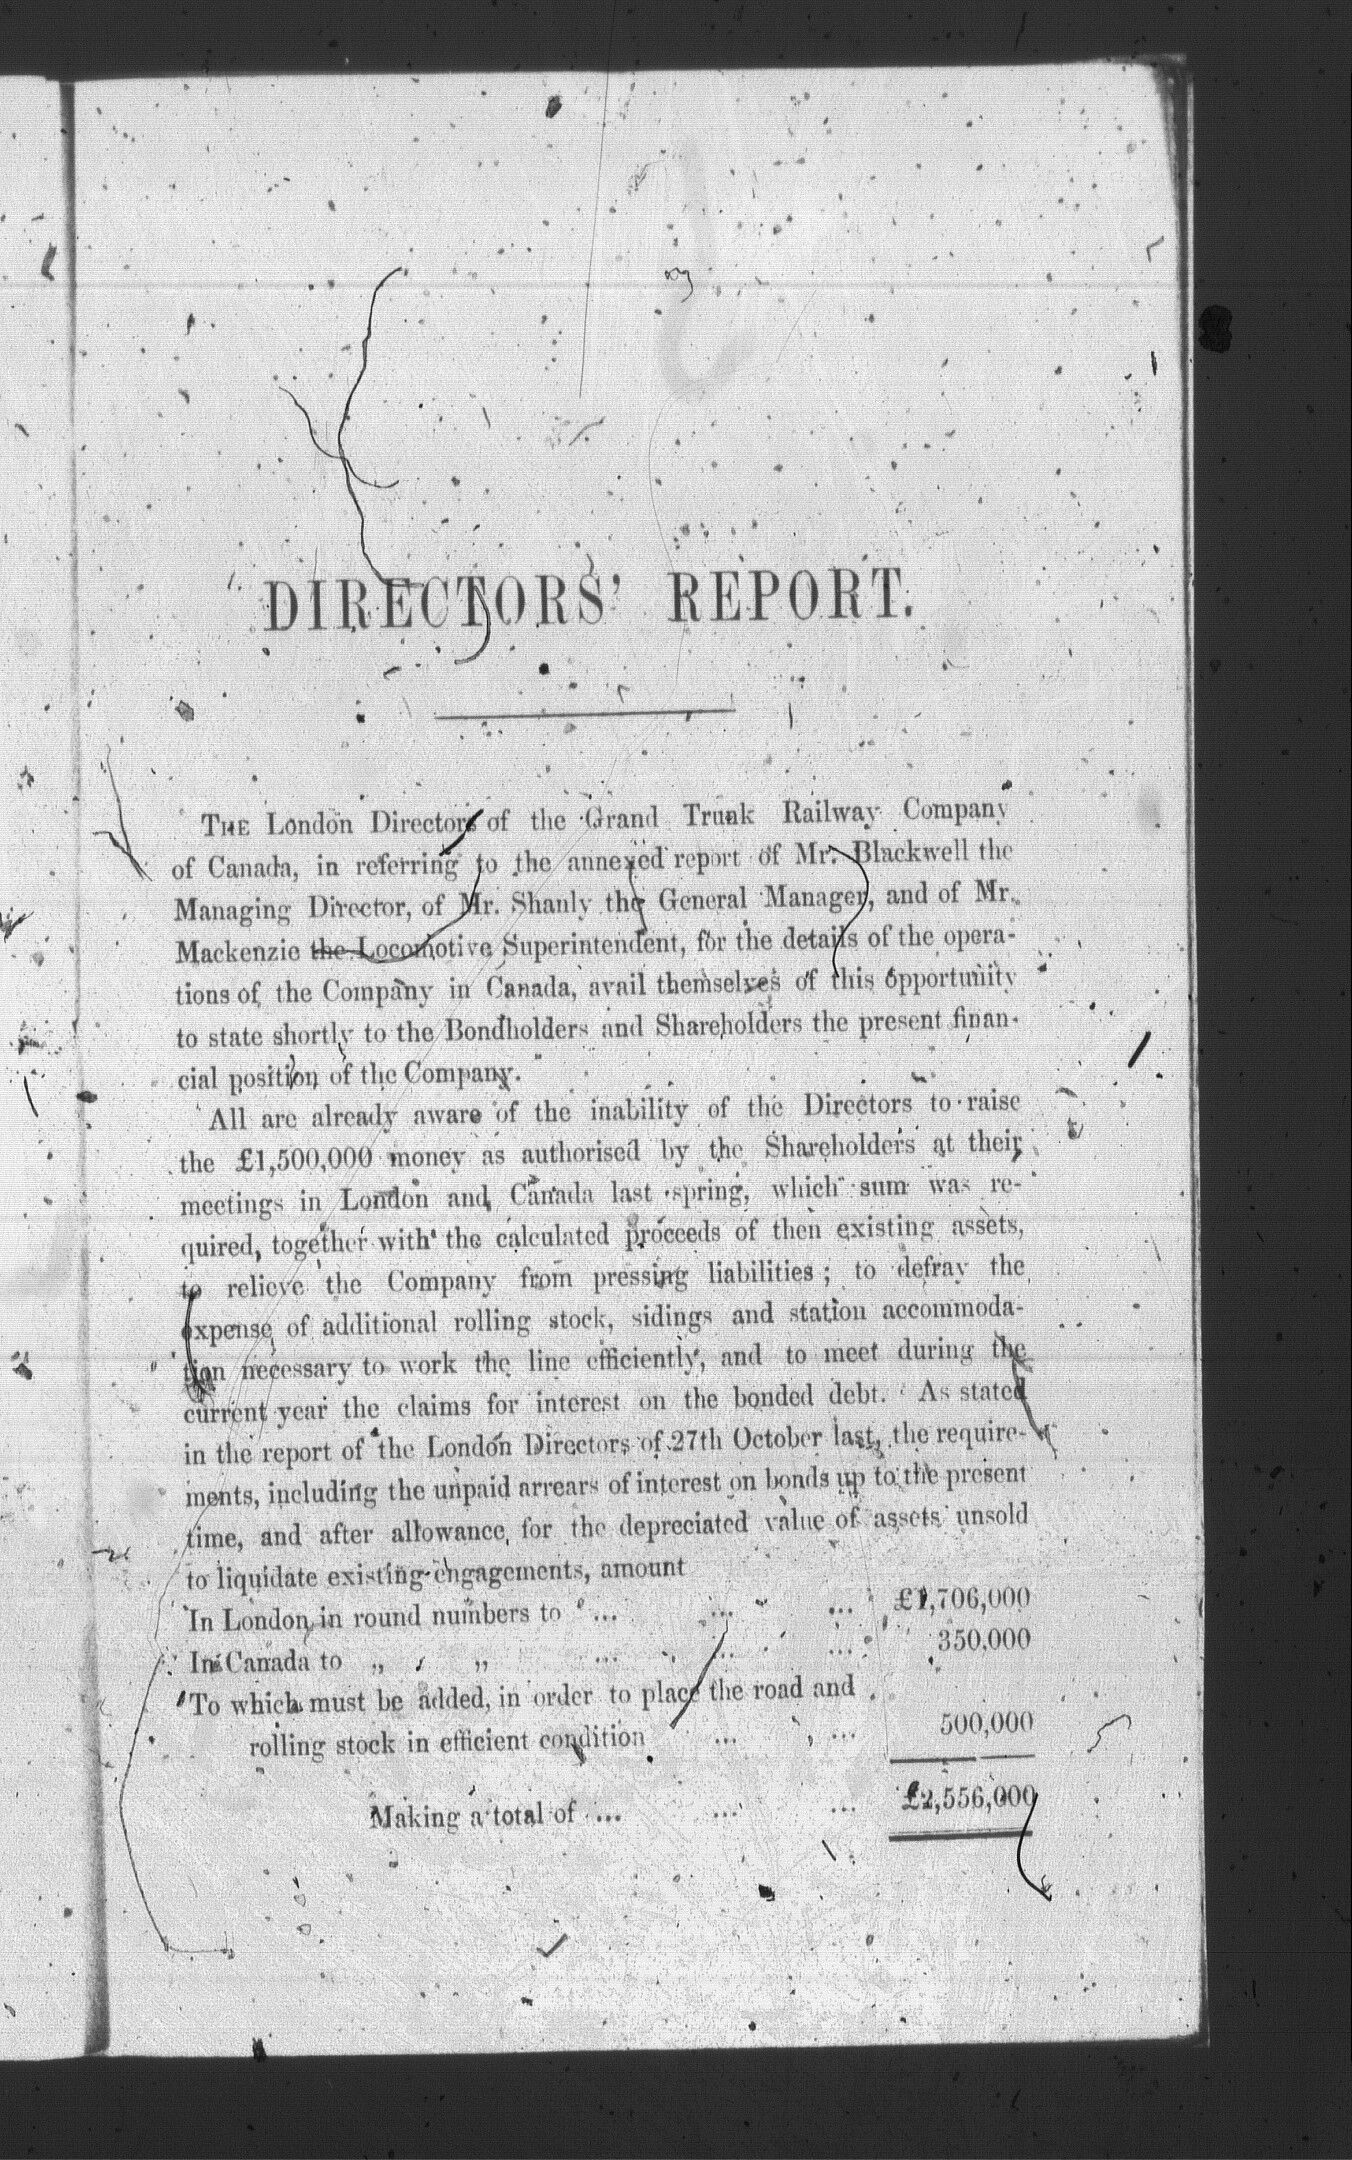 DIRECTORS' REPORT.
THE London Directors of the Grand Trunk Railway Company
of Canada, in referring to the annexed report of Mr. Blackwell the
Managing Director, of Mr. Shanly the General Manager, and of Mr.
Mackenzie the Locomotive Superintendent, for the details of the opera-
tions of the Company in Canada, avail themselves of this opportunity
to state shortly to the Bondholders and Shareholders the present finan-
cial position of the Company.
All are already aware of the inability of the Directors to raise
the £1,500,000 money as authorised by the Shareholders at their
meetings in London and Canada last spring, which sum was re-
quired, together with the calculated proceeds of then existing assets,
to relieve the Company from pressing liabilities; to defray the
expense of additional rolling stock, sidings and station accommoda-
tion necessary to work the line efficiently, and to meet during the
current year the claims for interest on the bonded debt. As stated
in the report of the London Directors of 27th October last, the require-
ments, including the unpaid arrears of interest on bonds up to the present
time, and after allowance for the depreciated value of assets unsold
to liquidate existing engagements, amount
In London in round numbers to ... ... ... £1,706,000
In Canada to „ „ ... ... ... 350,000
To which must be added, in order to place the road and
rolling stock in efficient condition ... ... 500,000
Making a total of ... ... ... £2,556,000